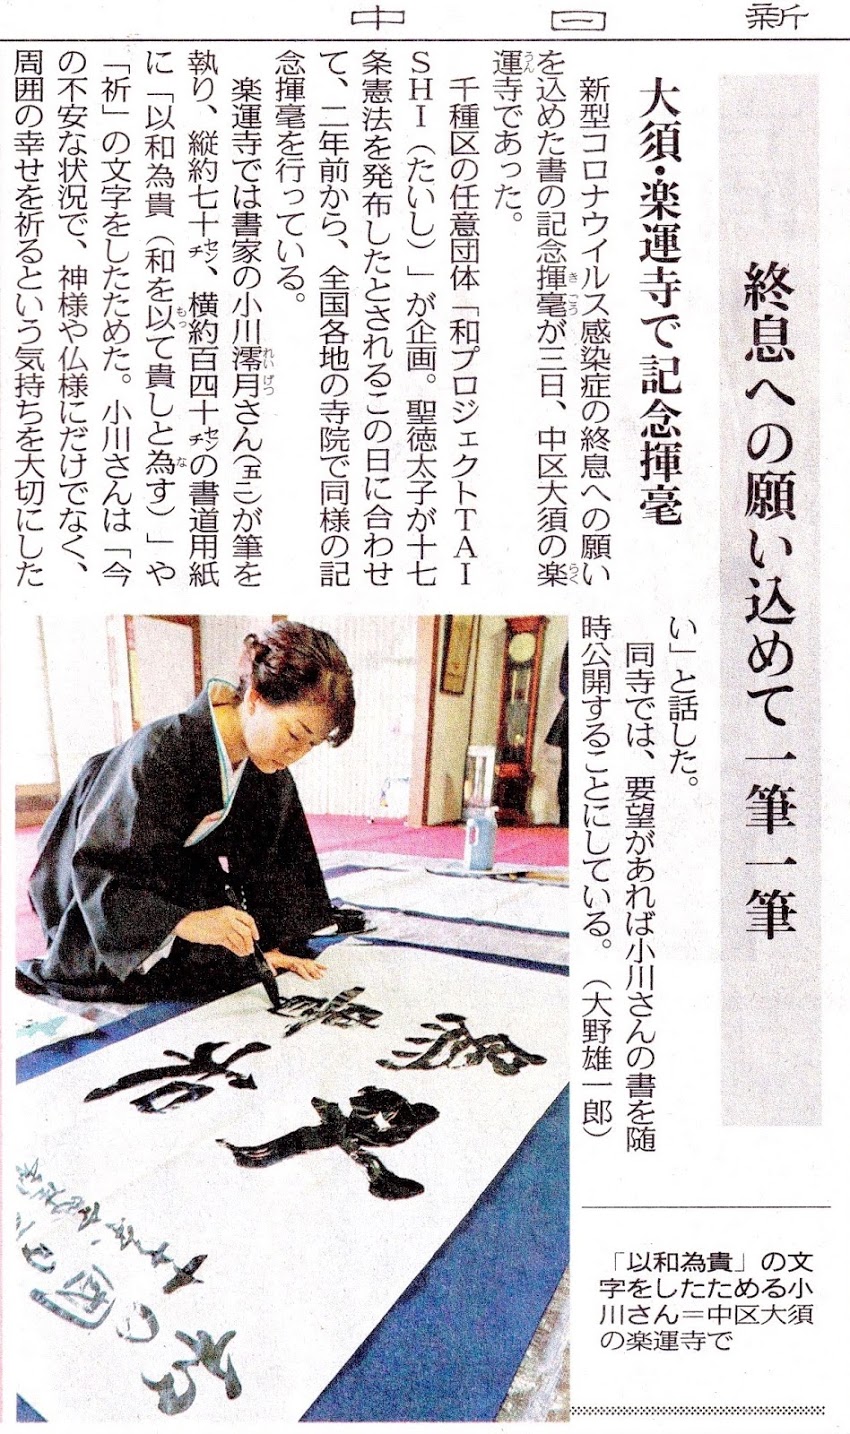 新 日 中
終息への願い込めて一筆一筆
大須・楽運寺で記念揮毫
新型コロナウイルス感染症の終息への願い
を込めた書の記念揮毫が三日、中区大須の楽
運寺であった。
千種区の任意団体「和プロジェクトTAI
SHI（たいし）」が企画。聖徳太子が十七
条憲法を発布したとされるこの日に合わせ
て、二年前から、全国各地の寺院で同様の記
念揮毫を行っている。
楽運寺では書家の小川澪月さん（五二）が筆を
執り、縦約七十㌢、横約百四十㌢の書道用紙
に「以和為貴（和を以て貴しと為す）」や
「祈」の文字をしたためた。小川さんは「今
の不安な状況で、神様や仏様にだけでなく、
周囲の幸せを祈るという気持ちを大切にした
い」と話した。
同寺では、要望があれば小川さんの書を随
時公開することにしている。（大野雄一郎）
「以和為貴」の文
字をしたためる小
川さん＝中区大須
の楽運寺で